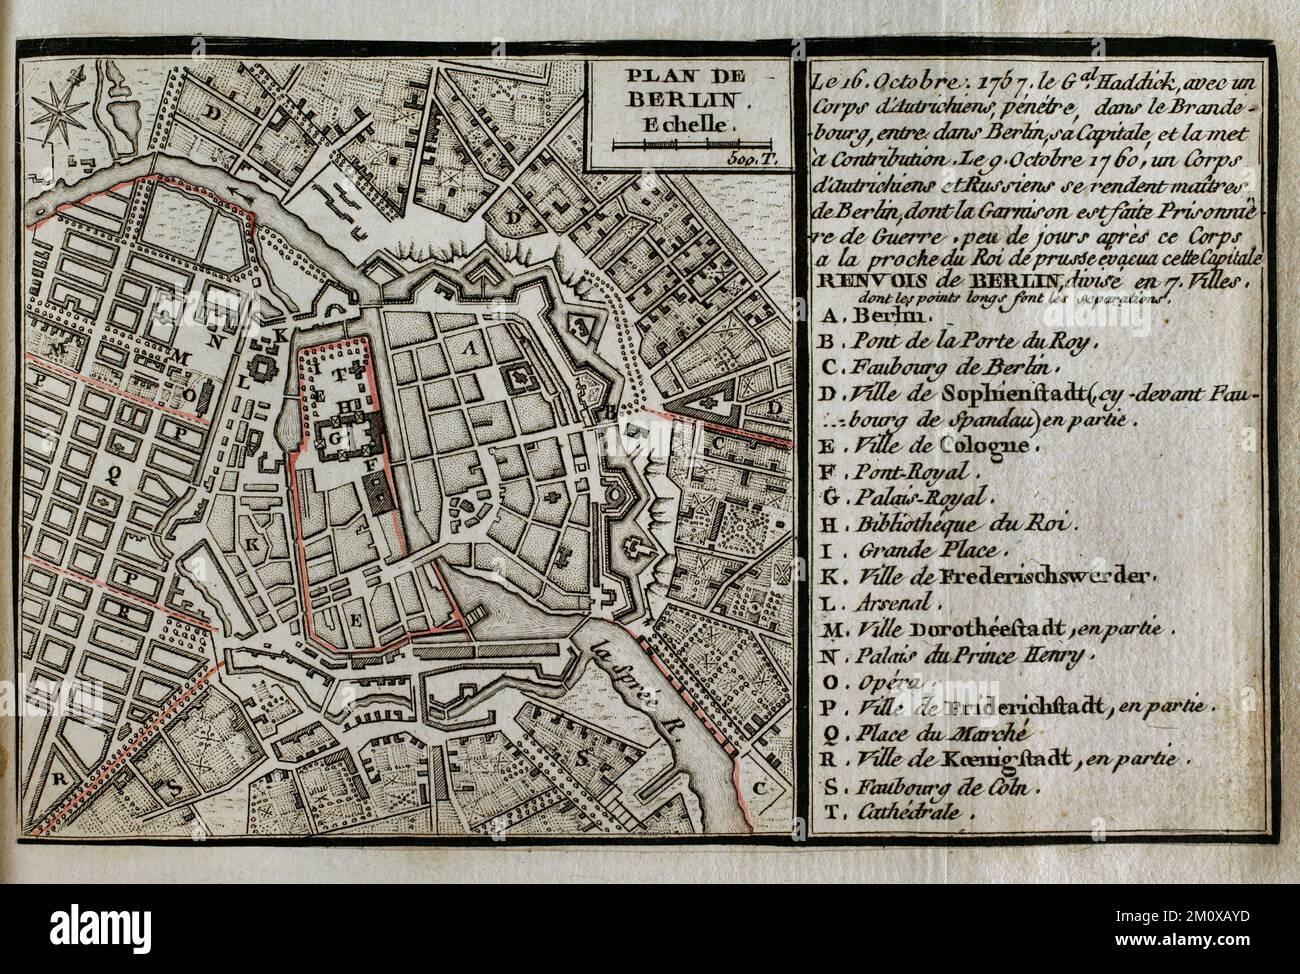 PLAN DE
BERLIN.
Echelle.
500. T.
Le 16. Octobre. 1757. le Gal. Haddick, avec un
Corps d'Autrichiens, penétre, dans le Brande-
bourg, entre dans Berlin, sa Capitale, et la met
à Contribution. Le 9. Octobre 1760, un Corps
d'Autrichiens et Russiens se rendent maîtres
de Berlin, dont la Garnison est faite Prisonniè-
re de Guerre, peu de jours après ce Corps
a la proche du Roi de prusse évacua cette Capitale
RENVOIS de BERLIN, divisé en 7. Villes.
dont les points longs font les separations.
A. Berlin.
B. Pont de la Porte du Roy.
C. Faubourg de Berlin.
D. Ville de Sophienstadt (cy-devant Fau-
bourg de Spandau) en partie.
E. Ville de Cologne.
F. Pont-Royal.
G. Palais-Royal.
H. Bibliothéque du Roi.
I. Grande Place.
K. Ville de Frederischswerder.
L. Arsenal.
M. Ville Dorothéestadt, en partie.
N. Palais du Prince Henry.
O. Opéra.
P. Ville de Friderichstadt, en partie.
Q. Place du Marché
R. Ville de Kœnigstadt, en partie.
S. Faubourg de Coln.
T. Cathédrale.
D
D
K
N
M
M
L
O
P
P
Q
I
T
E
H
G
F
A
B
D
C
K
P
R
E
la Sprée R
R
S
S
C
alamy
Image ID: 2M0XAYD
www.alamy.com